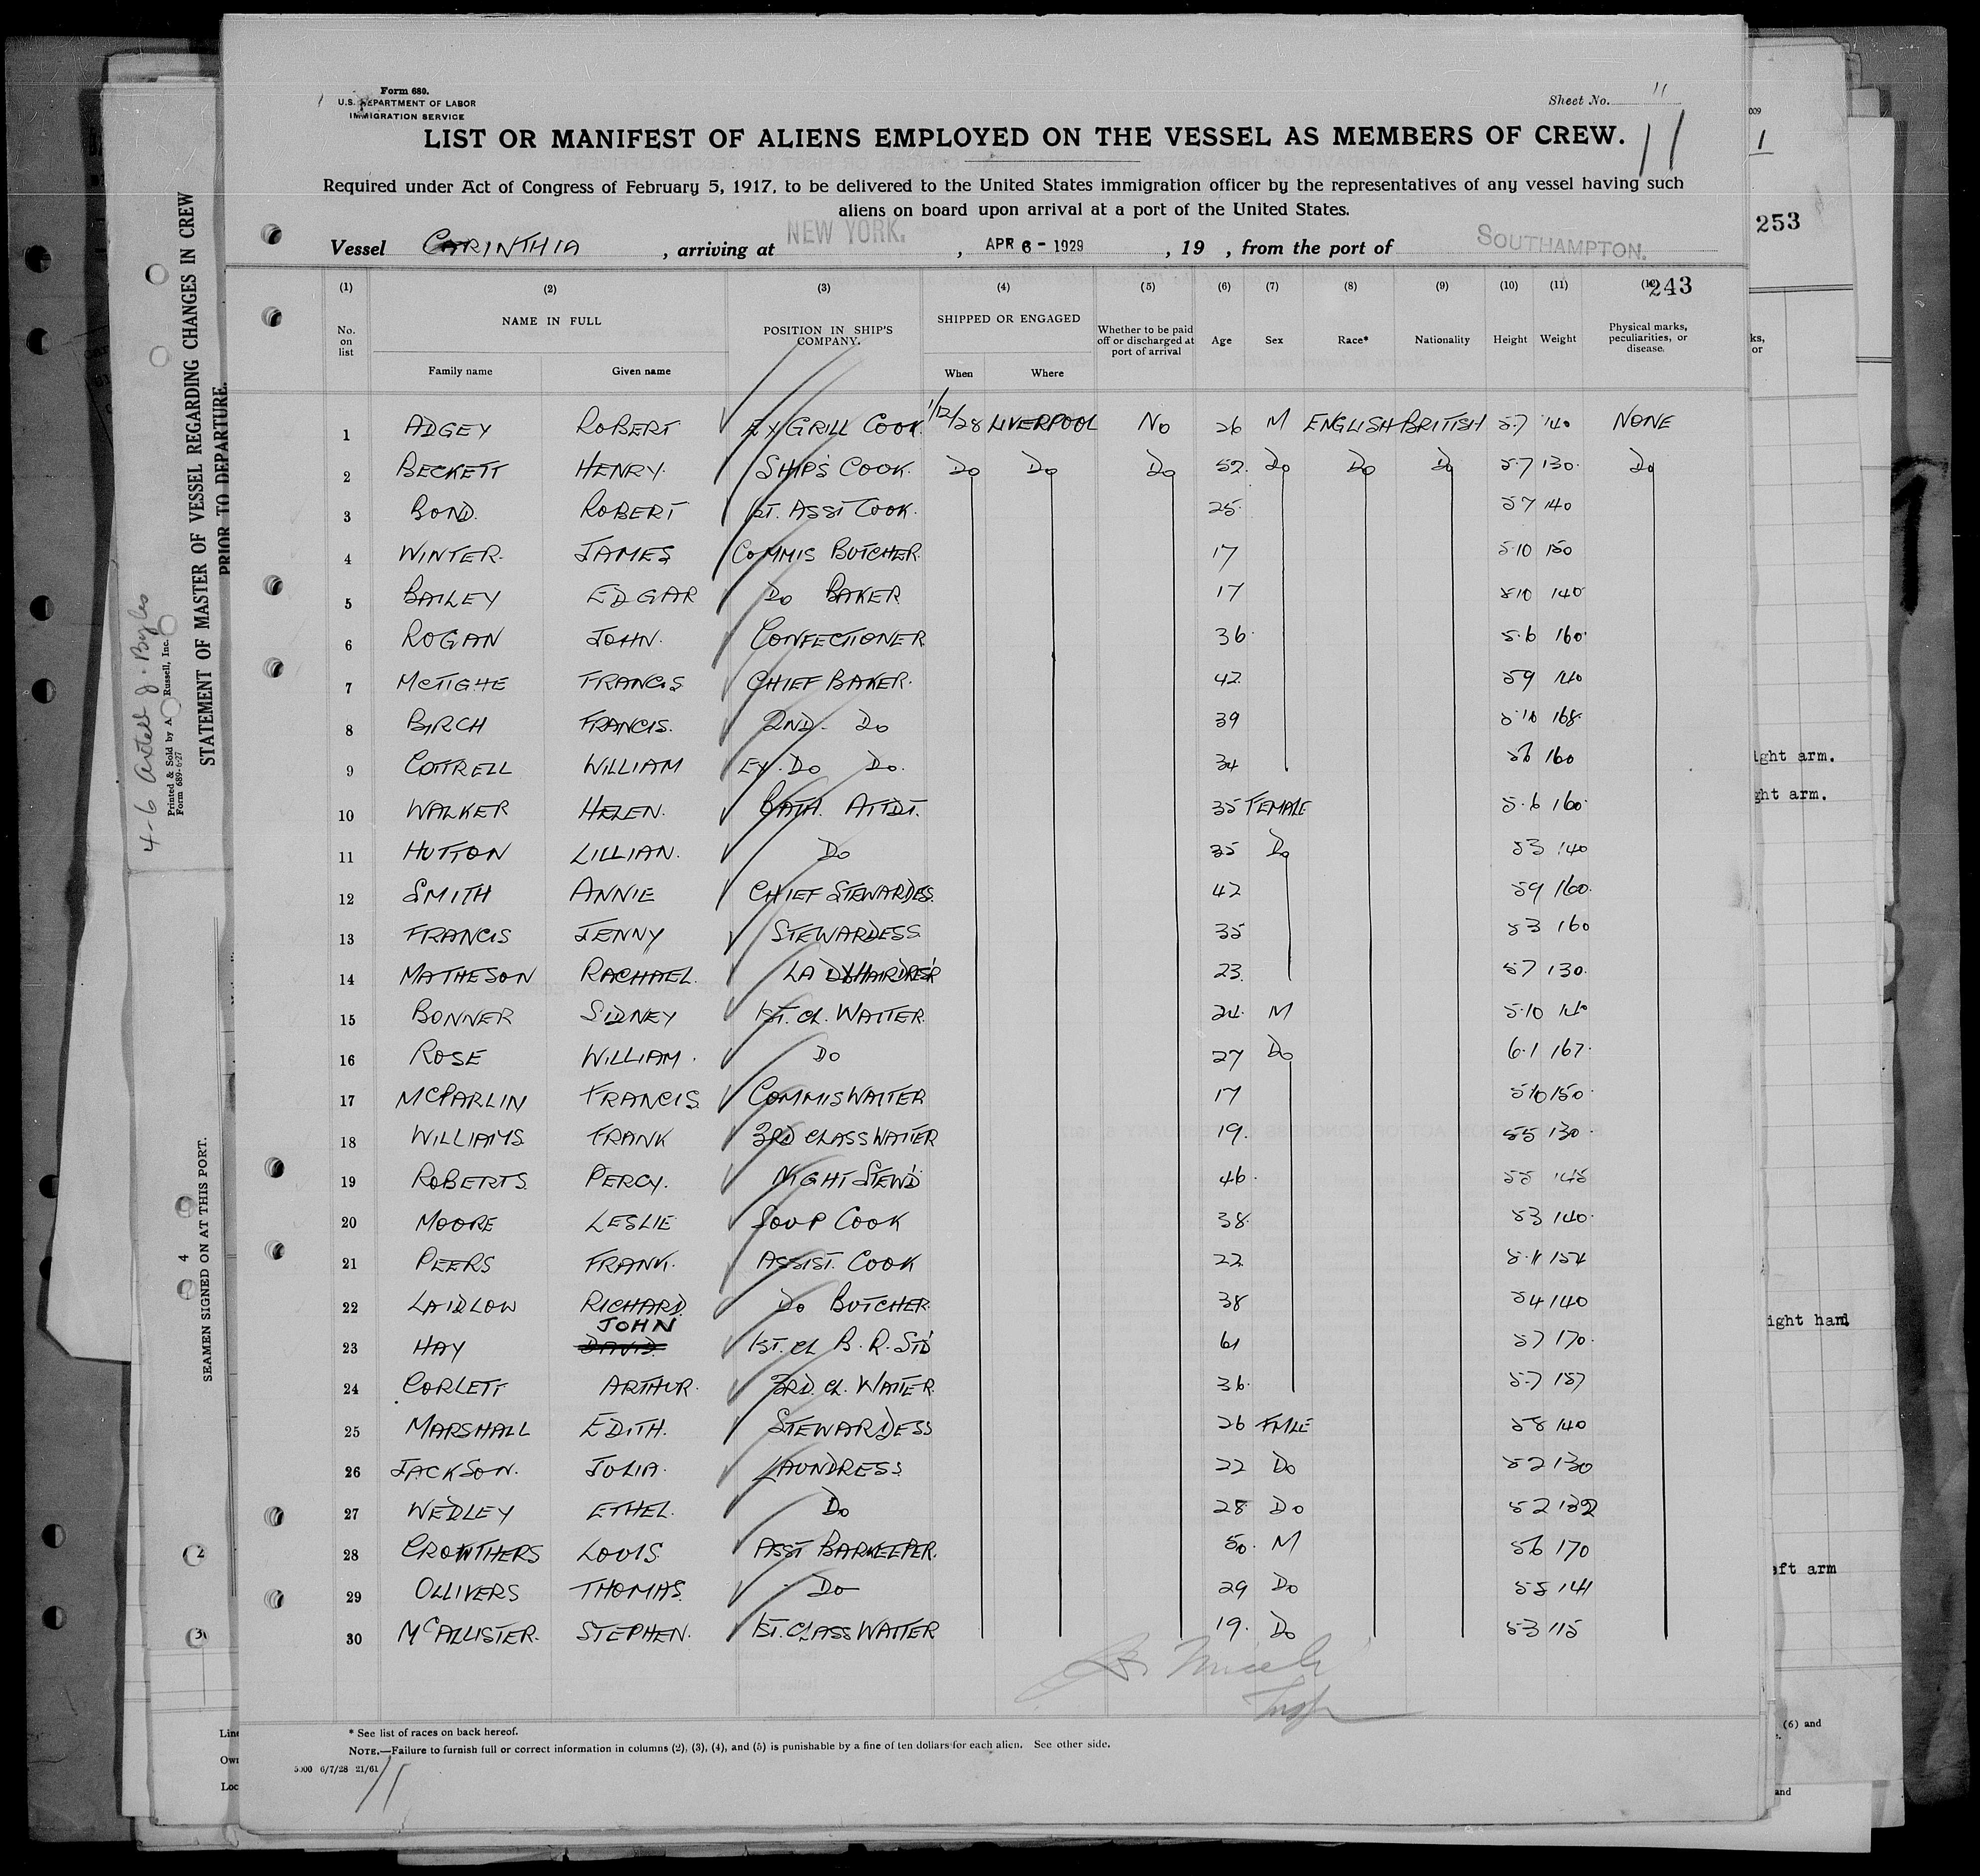 Form 680.
U.S. DEPARTMENT OF LABOR
IMMIGRATION SERVICE
Sheet No. 11
LIST OR MANIFEST OF ALIENS EMPLOYED ON THE VESSEL AS MEMBERS OF CREW. 11
Required under Act of Congress of February 5, 1917, to be delivered to the United States immigration officer by the representatives of any vessel having such
aliens on board upon arrival at a port of the United States.
Vessel CARINTHIA, arriving at NEW YORK., APR 6 - 1929, 19 , from the port of SOUTHAMPTON.
243
(1) (2) (3) (4) (5) (6) (7) (8) (9) (10) (11)
No. on list NAME IN FULL POSITION IN SHIP'S COMPANY. SHIPPED OR ENGAGED Whether to be paid off or discharged at port of arrival Age Sex Race* Nationality Height Weight Physical marks, peculiarities, or disease.
Family name Given name When Where
1 ADGEY ROBERT EX GRILL COOK. 1/12/28 LIVERPOOL No 26 M ENGLISH BRITISH 5.7 140 NONE
2 BECKETT HENRY. SHIPS COOK. Do Do Do 52. Do Do Do 5.7 130. Do
3 BOND. ROBERT 1ST. ASST COOK. 25. 5 7 140
4 WINTER. JAMES COMMIS BUTCHER. 17 5.10 150
5 BAILEY EDGAR Do BAKER 17 5 10 140
6 ROGAN JOHN. CONFECTIONER 36. 5.6 160.
7 MCTIGHE FRANCIS CHIEF BAKER. 42. 5 9 140
8 BIRCH FRANCIS. 2ND. Do 39 5.10 168.
9 COTTRELL WILLIAM EX. Do Do. 34 5 6 160
10 WALKER HELEN. BATH. ATTDT. 35 FEMALE 5.6 160.
11 HUTTON LILLIAN. Do 35 Do 5 3 140
12 SMITH ANNIE CHIEF STEWARDESS. 42 5 9 160.
13 FRANCIS JENNY STEWARDESS 35 5 3 160
14 MATHESON RACHAEL. LADY HAIRDRES'R 23. 5 7 130.
15 BONNER SIDNEY 1ST. CL. WAITER. 24. M 5.10 140
16 ROSE WILLIAM. Do 27 Do 6.1 167.
17 MCPARLIN FRANCIS. COMMIS WAITER 17 5 10 150.
18 WILLIAMS. FRANK 3RD CLASS WAITER 19. 5 5 130.
19 ROBERTS. PERCY. NIGHT STEW'D 46. 5 5 145
20 MOORE LESLIE SOUP COOK 38. 5 3 140.
21 PEERS FRANK. ASSIST. COOK 22 5.11 154
22 LAIDLOW RICHARD. Do BUTCHER. 38 5 4 140
JOHN
23 HAY DAVID. 1ST. CL B. R. STD 61 5 7 170.
24 CORLETT ARTHUR. 3RD. CL. WAITER. 36. 5.7 157
25 MARSHALL EDITH. STEWARDESS 26 FMLE 5 8 140
26 JACKSON. JULIA. LAUNDRESS 22 Do 5 2 130
27 WEDLEY ETHEL. Do 28 Do 5 2 132
28 CROWTHERS LOUIS ASST BARKEEPER. 50. M 5 6 170
29 OLLIVERS THOMAS. Do 29 Do 5 8 141
30 MCALLISTER. STEPHEN. 1ST. CLASS WAITER 19. Do 5 3 115
* See list of races on back hereof.
NOTE.—Failure to furnish full or correct information in columns (2), (3), (4), and (5) is punishable by a fine of ten dollars for each alien. See other side.
6/7/28 21/61
11
STATEMENT OF MASTER OF VESSEL REGARDING CHANGES IN CREW
PRIOR TO DEPARTURE.
Printed & Sold by A. Russell, Inc.
Form 689-6/27
SEAMEN SIGNED ON AT THIS PORT.
4
1
253
ight arm.
ght arm.
ight hand
eft arm
(6) and
and